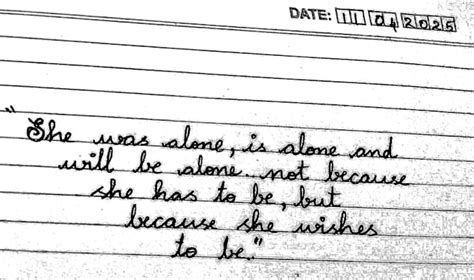 DATE: 11 04 2025
"She was alone, is alone and
will be alone.. not because
she has to be, but
because she wishes
to be."